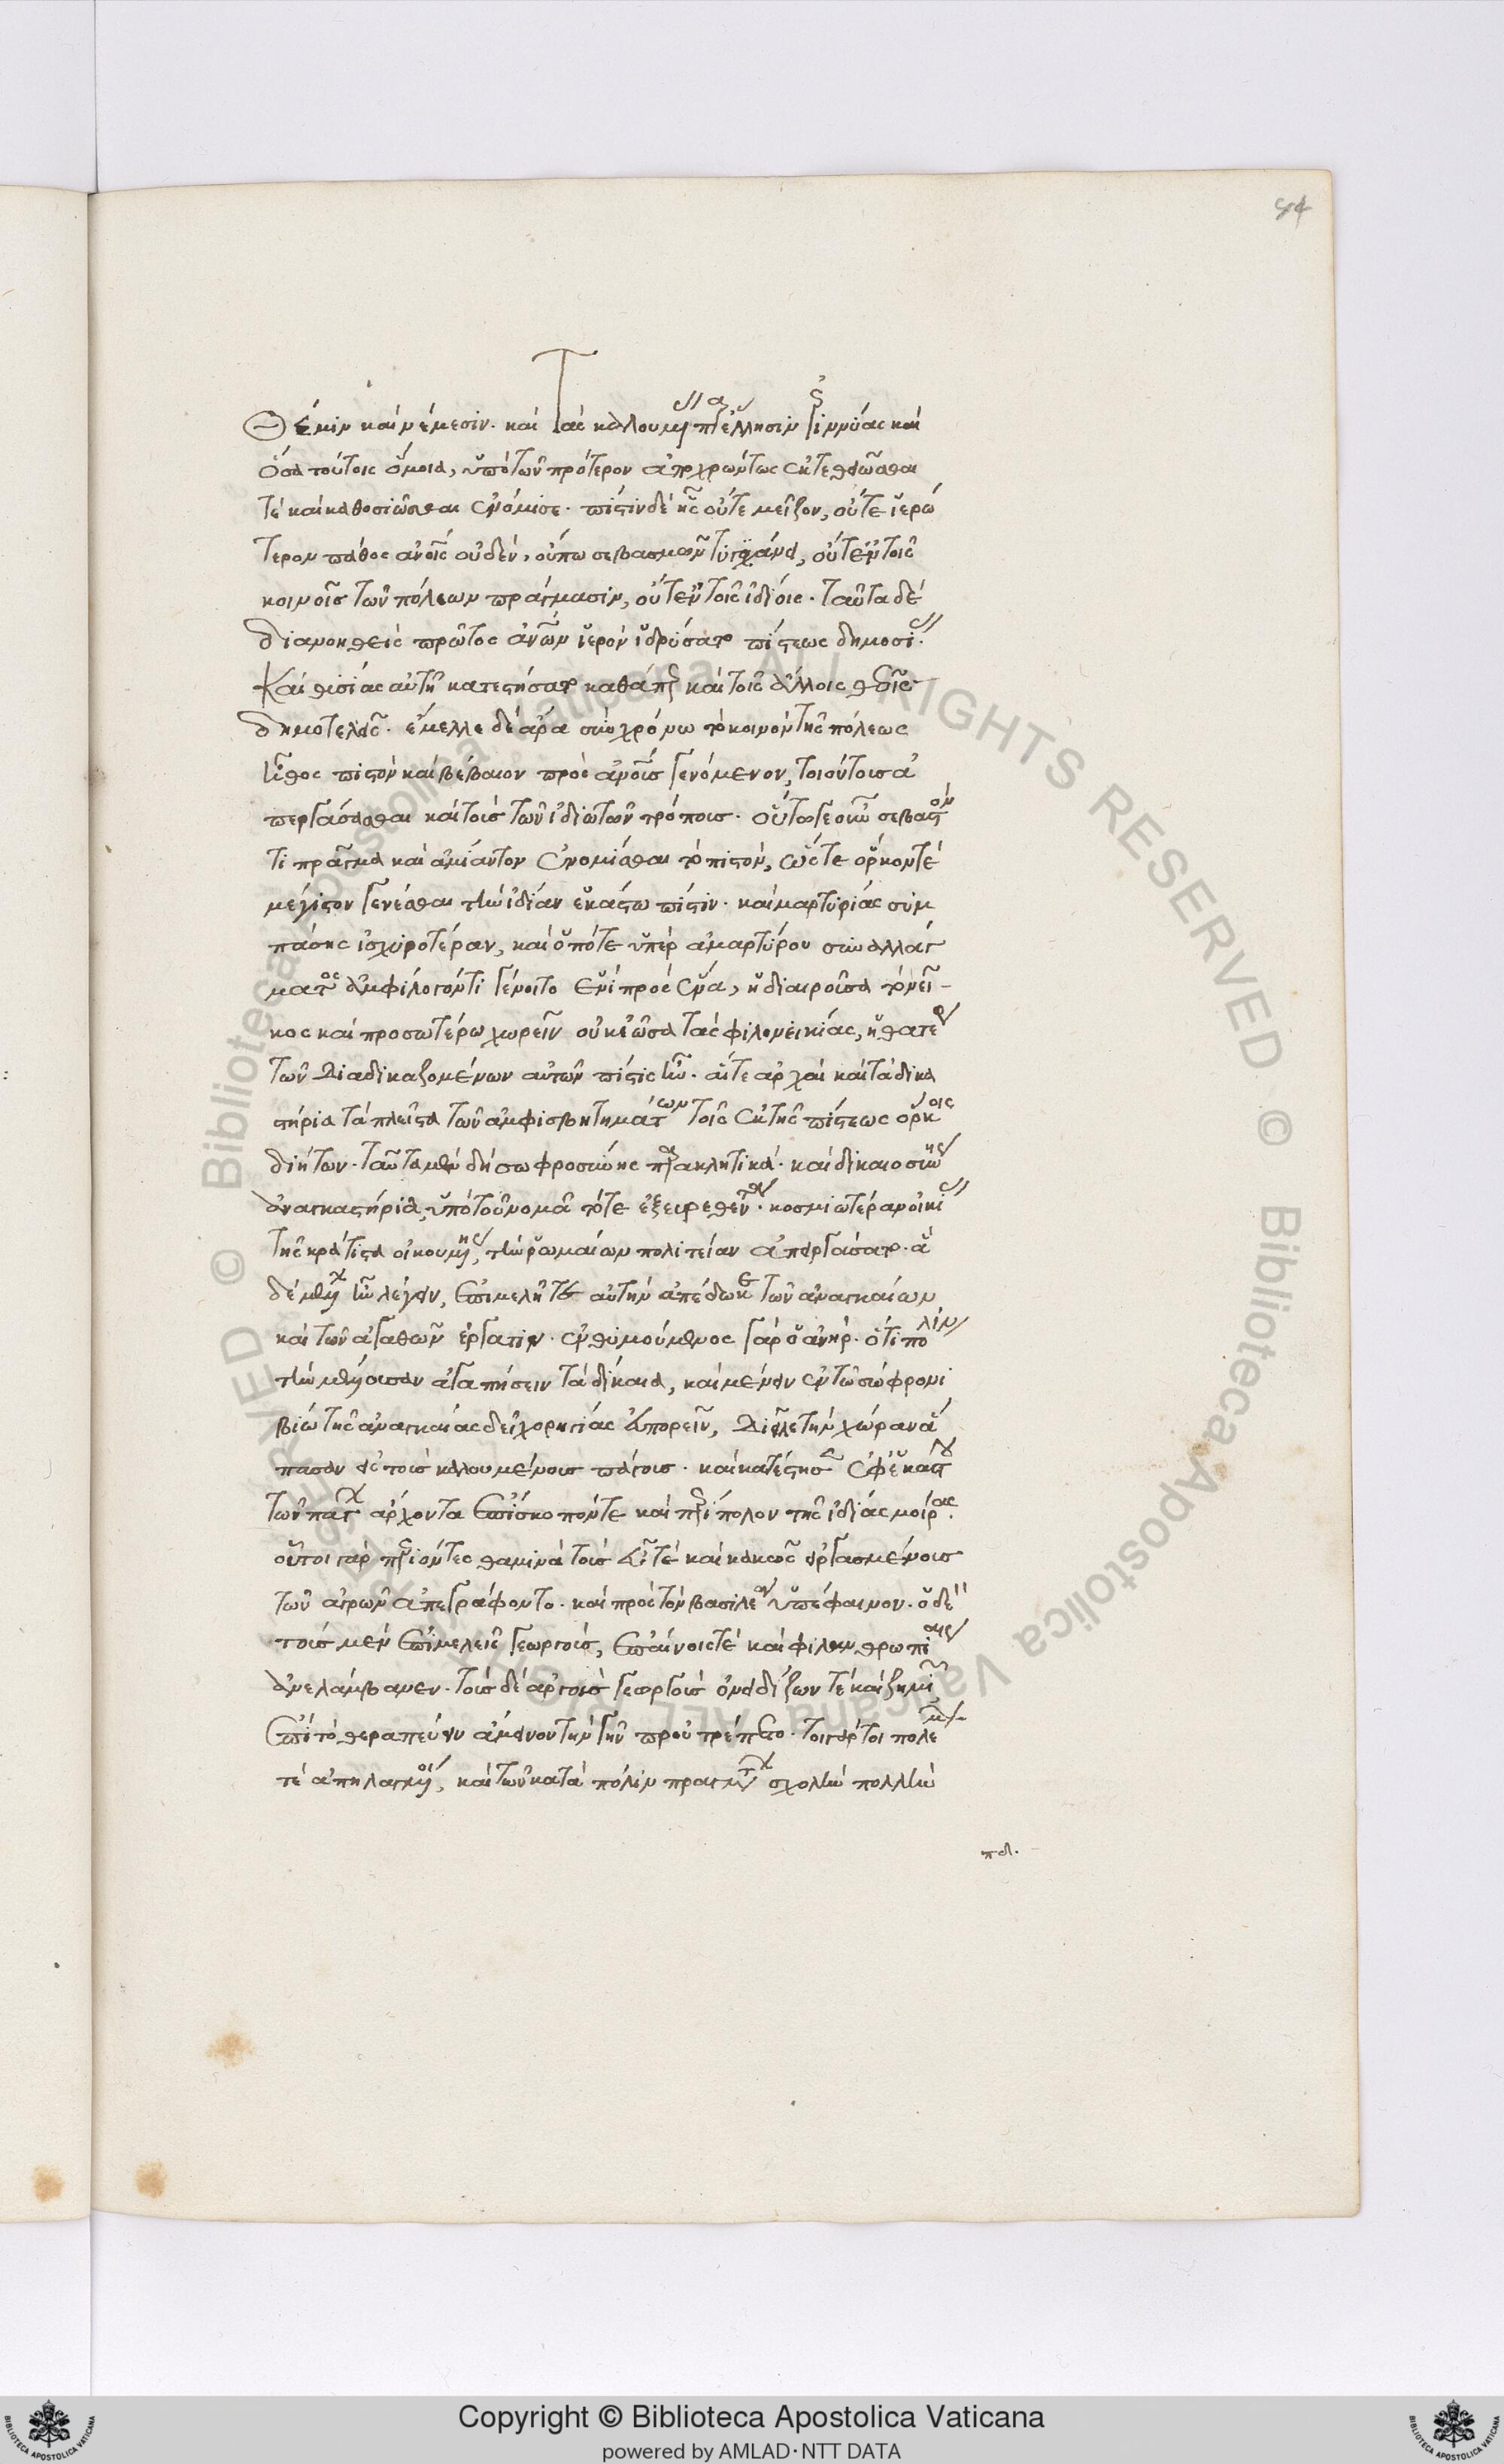 94
Θέμιν καὶ νέμεσιν. καὶ τὰς καλουμένας παρ' ἕλλησιν ἐριννύας καὶ
ὅσα τούτοις ὅμοια, ὑπὸ τῶν πρότερον ἀποχρώντως ἐκτεθεῶσθαι
τὲ καὶ καθοσιῶσθαι ἐνόμισε. πίστιν δὲ ἧς οὔτε μεῖζον, οὔτε ἱερώ
τερον πάθος ἀνοις οὐδὲν, οὔπω σεβασμῶν τυγχάνει, οὔτ' ἐν τοῖς
κοινοῖς τῶν πόλεων πράγμασιν, οὔτ' ἐν τοῖς ἰδίοις. ταῦτα δὲ
διανοηθεὶς πρῶτος ἀνων ἱερὸν ἱδρύσατο πίστεως δημοσίας.
καὶ θυσίας αὐτῆ κατεστήσατο καθάπερ καὶ τοῖς ἄλλοις θεοῖς
δημοτελεῖς. ἔμελλε δὲ ἄρα σὺν χρόνω τὸ κοινὸν τῆς πόλεως
ἦθος πιστὸν καὶ βέβαιον πρὸς ἀνοις γενόμενον, τοιούτους ἀ
περγάσασθαι καὶ τοὺς τῶν ἰδιωτῶν τρόπους. οὕτω γε οὖν σεβαστόν
τι πράγμα καὶ ἀμίαντον ἐνομίσθαι τὸ πιστὸν, ὥστε ὅρκον τὲ
μέγιστον γενέσθαι τὴν ἰδίαν ἑκάστω πίστιν. καὶ μαρτυρίας συμ
πάσης ἰσχυροτέραν, καὶ ὁπότε ὑπὲρ ἀμαρτύρου συναλλάγ
ματος ἀμφίλογόν τι γένοιτο ἑνὶ πρὸς ἕνα, ἡ διαιροῦσα τὸ νεῖ-
κος καὶ προσωτέρω χωρεῖν οὐκ ἐῶσα τὰς φιλονεικίας, ἡ θατέρου
τῶν διαδικαζομένων αὐτῶν πίστις ἦν. αἵτε ἀρχαὶ καὶ τὰ δικα
στήρια τὰ πλεῖστα τῶν ἀμφισβητημάτων τοῖς ἐκ τῆς πίστεως ὅρκοις
διήτων. ταῦτα μὲν δὴ σωφροσύνης παρακλητικά. καὶ δικαιοσύνης
ἀναγκαστήρια, ὑπὸ τοῦ νομᾶ τότε ἐξευρεθέντα. κοσμιωτέραν οἰκίας
τῆς κράτιστα οἰκουμένης, τὴν ῥωμαίων πολιτείαν ἀπειργάσατο. ἃ
δὲ μέλλων ἦν λέγειν, ἐπιμελῆ τε αὐτὴν ἀπέδωκε τῶν ἀναγκαίων
καὶ τῶν ἀγαθῶν ἐργάτιν. ἐνθυμούμενος γὰρ ὁ ἀνὴρ. ὅτι πόλιν
τὴν μέλλουσαν ἀγαπήσειν τὰ δίκαια, καὶ μένειν ἐν τῶ σώφρονι
βίω τῆς ἀναγκαίας δεῖ χορηγίας ἀπορεῖν, διεῖλε τὴν χώραν ἅ
πασαν εἰς τοὺς καλουμένους πάγους. καὶ κατέστησεν ἐφ' ἑκάστου
τῶν πάγων ἄρχοντα ἐπίσκοπόν τε καὶ περίπολον τῆς ἰδίας μοίρας.
οὗτοι γὰρ περιιόντες θαμινὰ τοὺς εὖ τὲ καὶ κακῶς εἰργασμένους
τῶν ἀγρῶν ἀπεγράφοντο. καὶ πρὸς τὸν βασιλέα ὑπέφαινον. ὁ δὲ
τοὺς μὲν ἐπιμελεῖς γεωργοὺς, ἐπαίνοις τὲ καὶ φιλανθρωπίαις
ἀνελάμβανεν. τοὺς δὲ ἀργοὺς γεωργοὺς ὀνειδίζων τὲ καὶ ζημιῶν
ἐπὶ τὸ θεραπεύειν ἄμεινον τὴν γῆν προὐτρέπετο. τοιγάρτοι πολέμων
τὲ ἀπηλαγμένοι, καὶ τῶν κατὰ πόλιν πραγμάτων σχολὴν πολλὴν